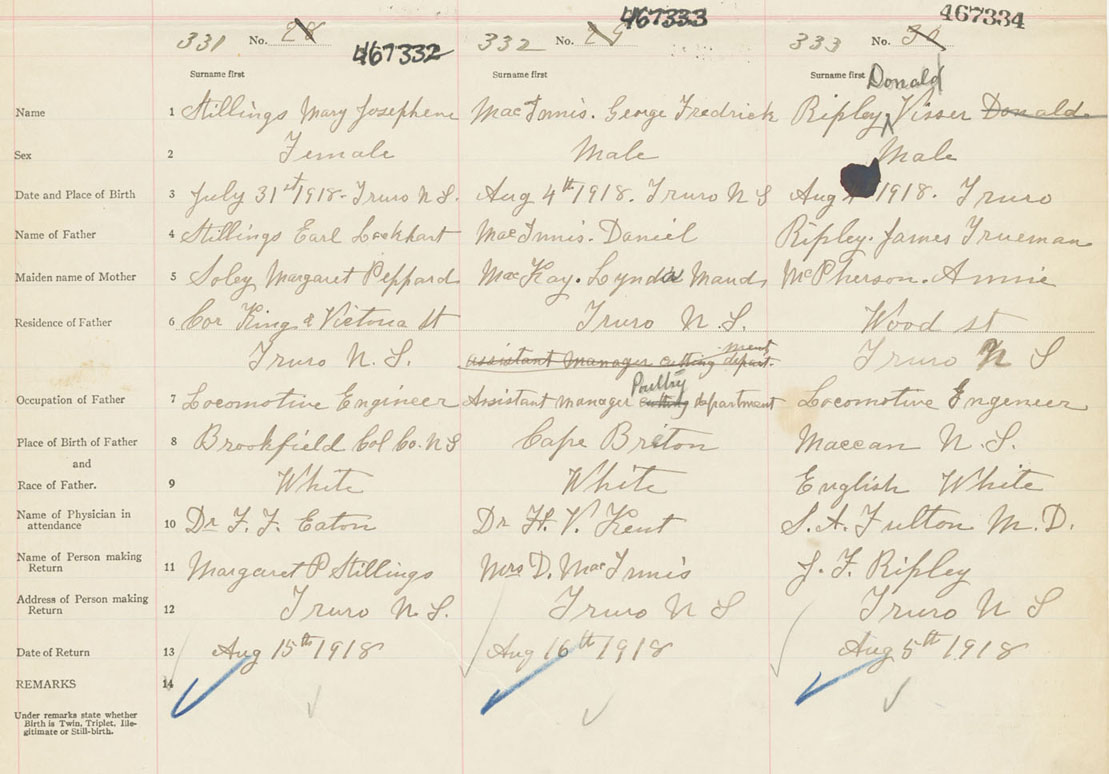 467333 467334
331 No. 28 467332 332 No. 29 333 No. 30
Surname first Surname first Surname first Donald
Name 1 Stillings Mary Josephene MacInnis. George Fredrick Ripley Visser Donald
Sex 2 Female Male Male
Date and Place of Birth 3 July 31st 1918. Truro N S. Aug 4th 1918. Truro N S Aug 1918. Truro
Name of Father 4 Stillings Earl Lockhart MacInnis. Daniel Ripley. James Trueman
Maiden name of Mother 5 Soley Margaret Peppard MacKay. Lynda Maud McPherson. Annie
Residence of Father 6 Cor King & Victoria St Truro N. S. Wood st
ment
Truro N. S. assistant manager cutting depart. Truro N S
Poultry
Occupation of Father 7 Locomotive Engineer Assistant manager cutting department Locomotive Engeneer
Place of Birth of Father 8 Brookfield Col Co. N S Cape Briton Maccan N. S.
and
Race of Father. 9 White White English White
Name of Physician in
attendance 10 Dr F. F. Eaton Dr H. V. Kent S. A. Fulton M. D.
Name of Person making
Return 11 Margaret P Stillings Mrs D. MacInnis J. F. Ripley
Address of Person making
Return 12 Truro N S. Truro N S Truro N S
Date of Return 13 Aug 15th 1918 Aug 16th 1918 Aug 5th 1918
REMARKS 14
Under remarks state whether
Birth is Twin, Triplet, Ille-
gitimate or Still-birth.